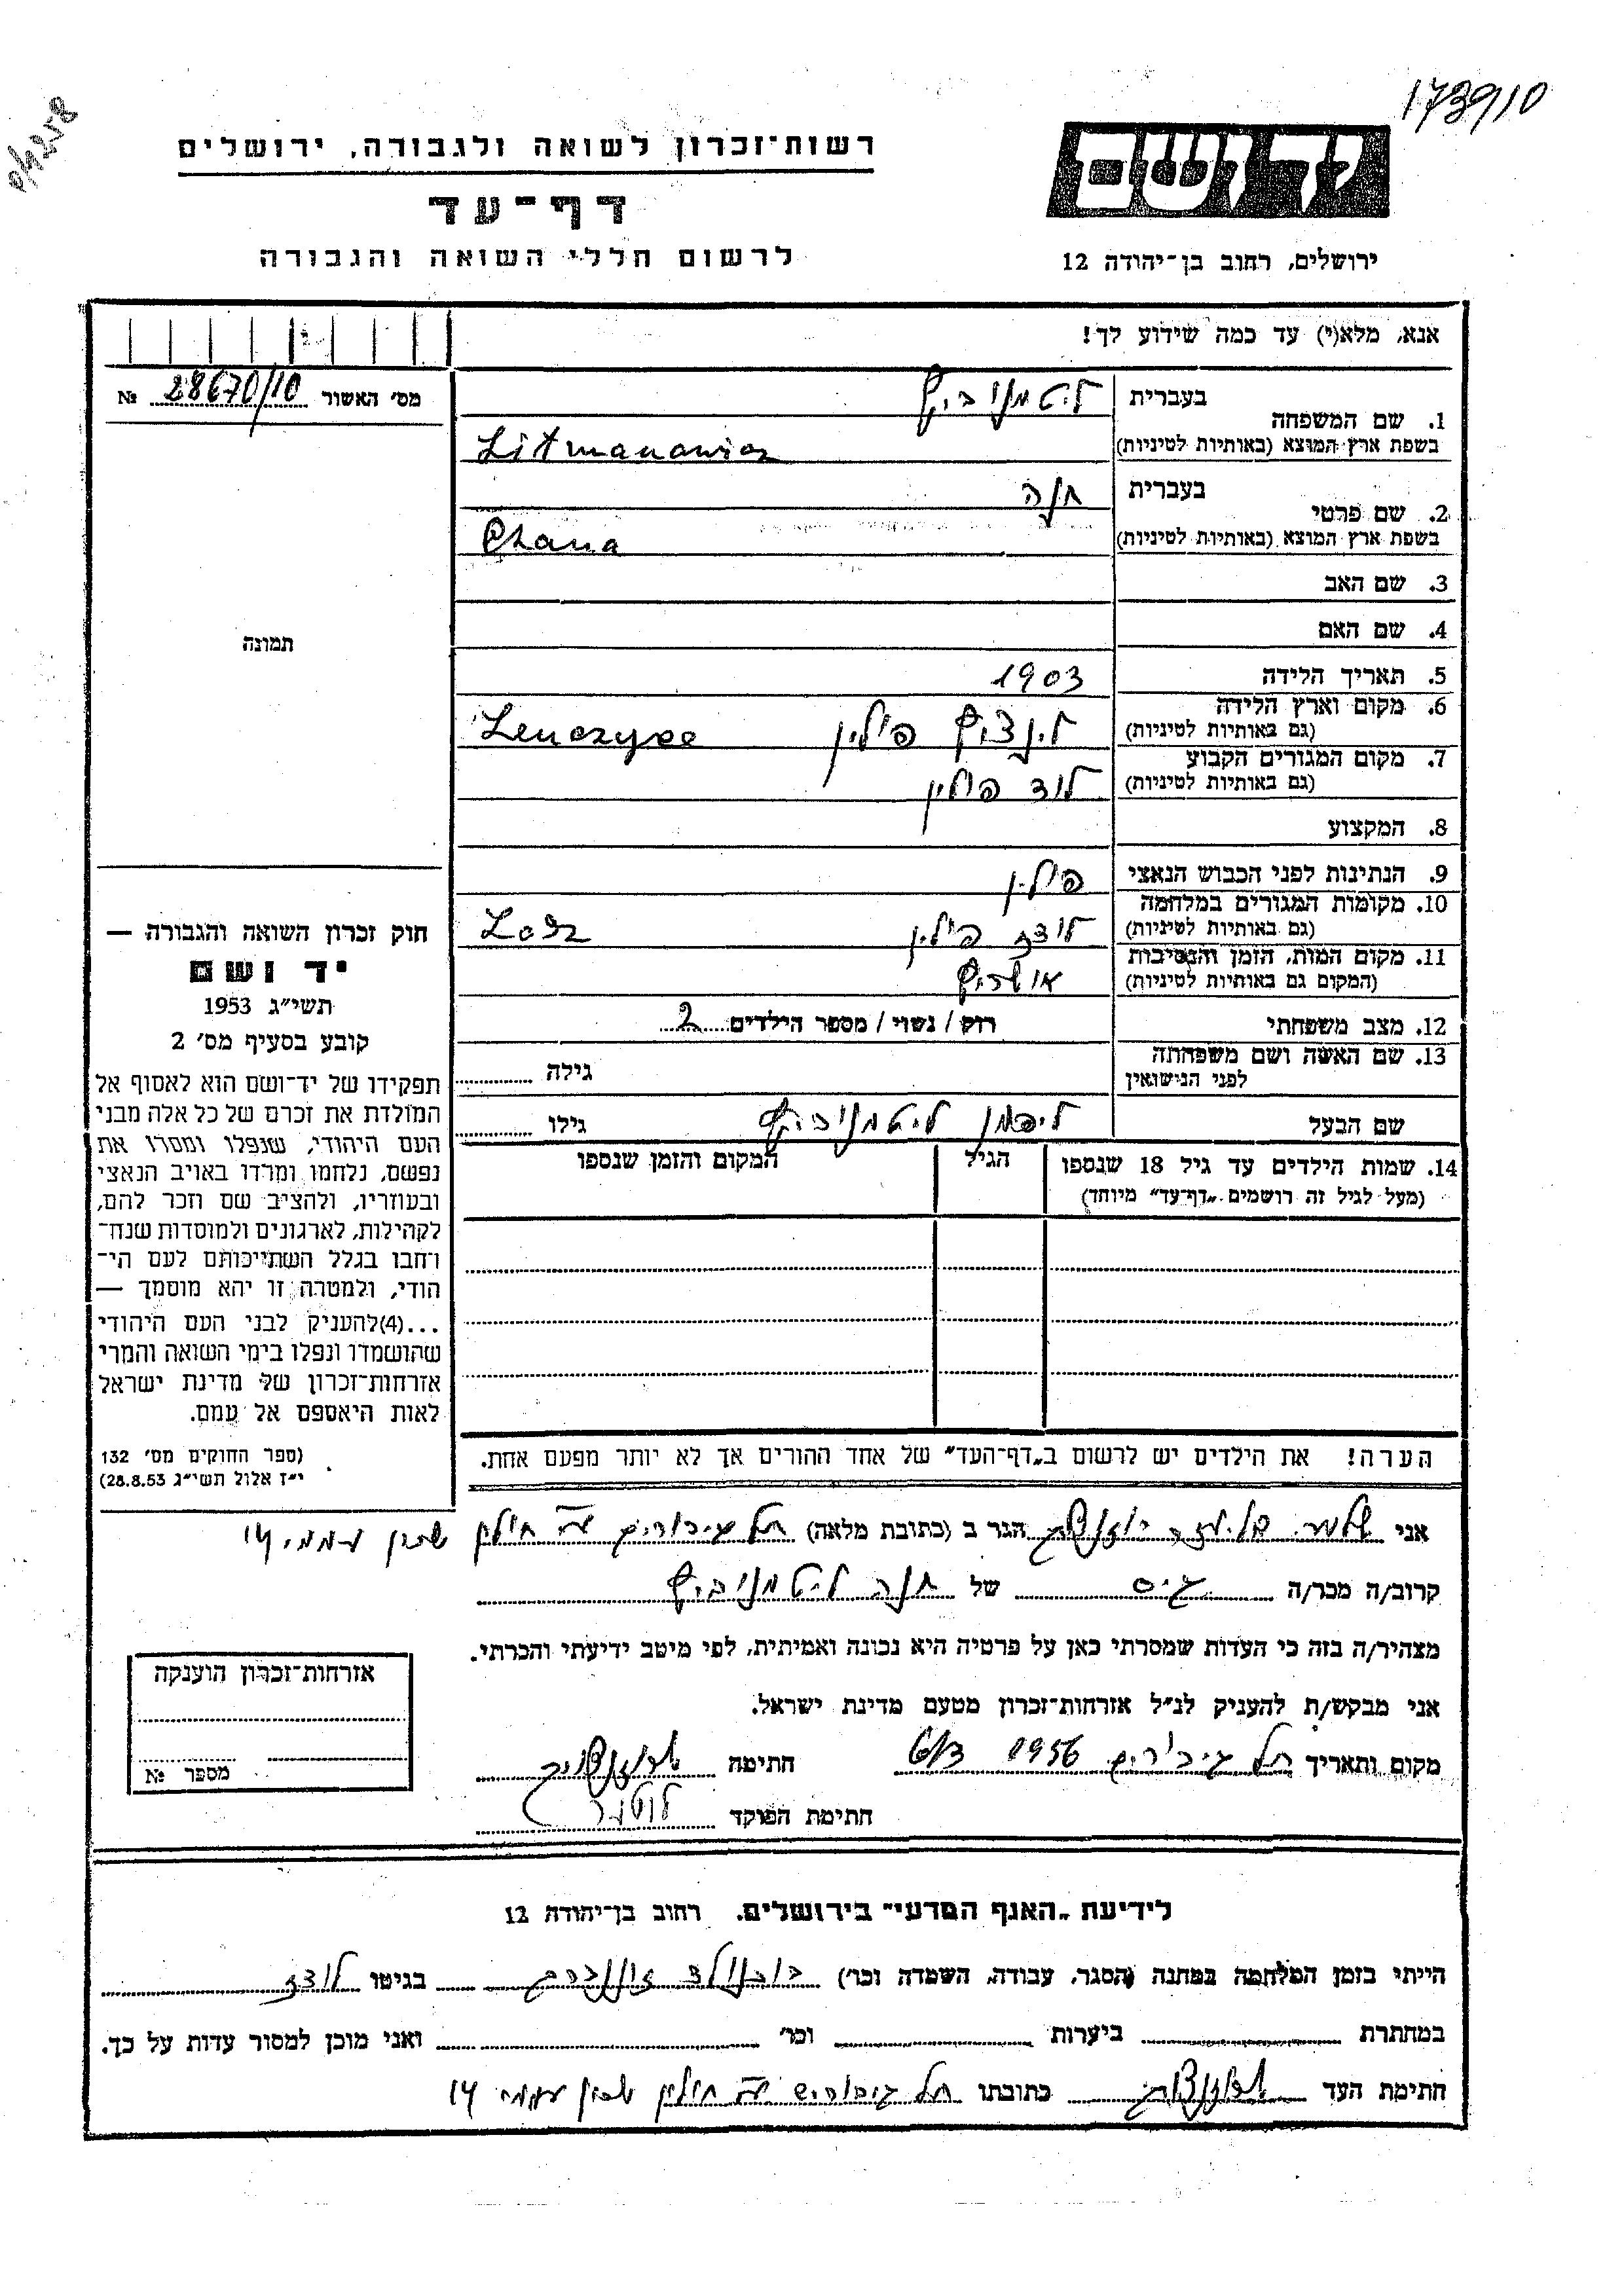 173910
רשות־זכרון לשואה ולגבורה, ירושלים
דף־עד
לרשום חללי השואה והגבורה
יד ושם
ירושלים, רחוב בן־יהודה 12
אנא, מלא(י) עד כמה שידוע לך!
מס׳ האשור 28670/10 №
תמונה
1. שם המשפחה בעברית ליטמנוביץ
בשפת ארץ המוצא (באותיות לטיניות) Litmanowicz
2. שם פרטי בעברית חנה
בשפת ארץ המוצא (באותיות לטיניות) Chana
3. שם האב
4. שם האם
5. תאריך הלידה 1903
6. מקום וארץ הלידה לינציץ פולין Lenczyce
(גם באותיות לטיניות)
7. מקום המגורים הקבוע לודz פולין
(גם באותיות לטיניות)
8. המקצוע
9. הנתינות לפני הכבוש הנאצי פולין
10. מקומות המגורים במלחמה לודז פולין Lodz
(גם באותיות לטיניות)
11. מקום המות, הזמן והנסיבות אושויץ
(המקום גם באותיות לטיניות)
12. מצב משפחתי רוק / נשוי / מספר הילדים 2
13. שם האשה ושם משפחתה גילה
לפני הנישואין
שם הבעל ליפמן ליטמנוביץ גילו
14. שמות הילדים עד גיל 18 שנספו הגיל המקום והזמן שנספו
(מעל לגיל זה רושמים „דף־עד״ מיוחד)
חוק זכרון השואה והגבורה —
יד ושם
תשי״ג 1953
קובע בסעיף מס׳ 2
תפקידו של יד־ושם הוא לאסוף אל
המולדת את זכרם של כל אלה מבני
העם היהודי, שנפלו ומסרו את
נפשם, נלחמו ומרדו באויב הנאצי
ובעוזריו, ולהציב שם וזכר להם,
לקהילות, לארגונים ולמוסדות שנח־
רחבו בגלל השתייכותם לעם הי־
הודי, ולמטרה זו יהא מוסמך —
...(4)להעניק לבני העם היהודי
שהושמדו ונפלו בימי השואה והמרי
אזרחות־זכרון של מדינת ישראל
לאות היאספם אל עמם.
(ספר החוקים מס׳ 132
י״ז אלול תשי״ג 28.8.53)
הערה! את הילדים יש לרשום ב„דף־העד״ של אחד ההורים אך לא יותר מפעם אחת.
אני הגר ב (כתובת מלאה) תל גיבורים ע״י חולין שכון עממי 14
קרוב/ה מכר/ה גיס של חנה ליטמנוביץ
מצהיר/ה בזה כי העדות שמסרתי כאן על פרטיה היא נכונה ואמיתית, לפי מיטב ידיעתי והכרתי.
אני מבקש/ת להעניק לנ״ל אזרחות־זכרון מטעם מדינת ישראל.
מקום ותאריך תל גיבורים 1956 6/3 חתימה
חתימת הפוקד
אזרחות־זכרון הוענקה
מספר №
לידיעת „האגף המדעי״ בירושלים, רחוב בן־יהודה 12
הייתי בזמן המלחמה במחנה (הסגר, עבודה, השמדה וכר׳) בגיטו לודז
במחתרת ביערות וכר׳ ואני מוכן למסור עדות על כך.
חתימת העד כתובתו תל גיבורים ע״י חולין שכון עממי 14